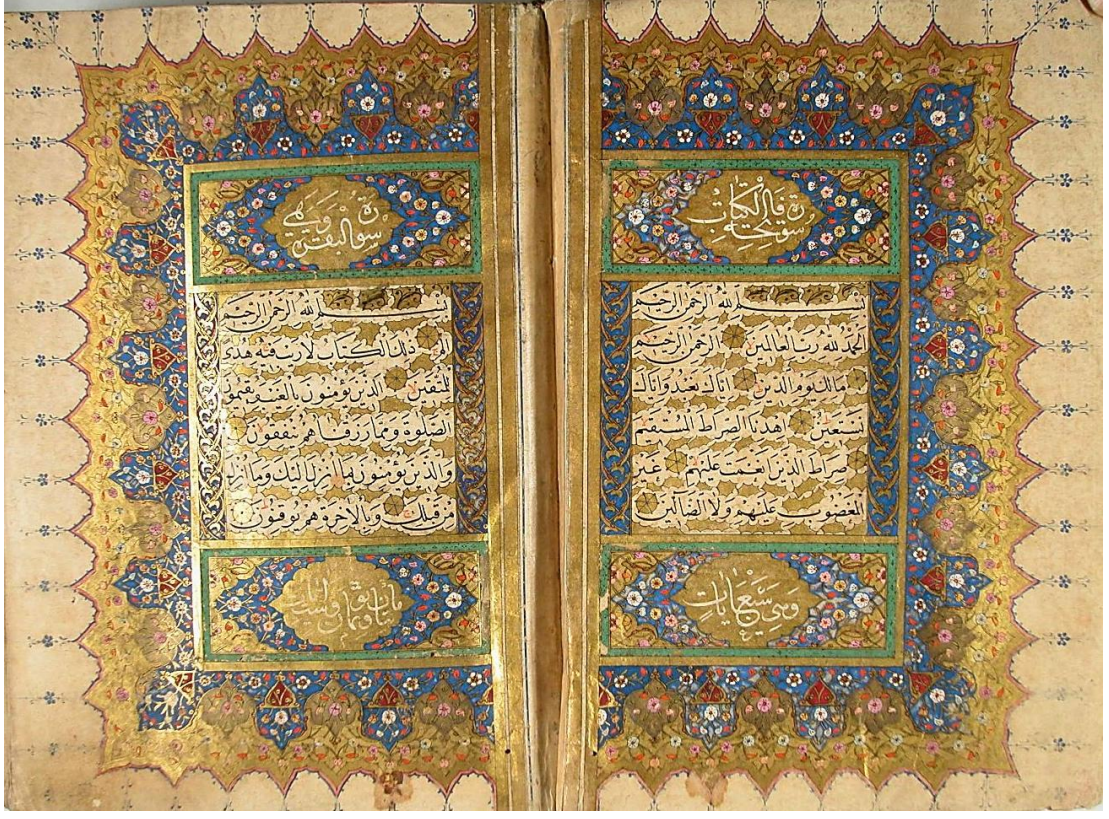 سورة فاتحة الكتاب
بسم الله الرحمن الرحيم
الحمد لله رب العالمين الرحمن الرحيم
مالك يوم الدين اياك نعبد واياك
نستعين اهدنا الصراط المستقيم
صراط الذين انعمت عليهم غير
المغضوب عليهم ولا الضالين
وهي سبع ايات
سورة البقرة وهي
بسم الله الرحمن الرحيم
الم ذلك الكتاب لا ريب فيه هدى
للمتقين الذين يؤمنون بالغيب ويقيمون
الصلوة ومما رزقناهم ينفقون
والذين يؤمنون بما انزل اليك وما انزل
من قبلك وبالاخرة هم يوقنون
مائتان وثمانون وست ايات